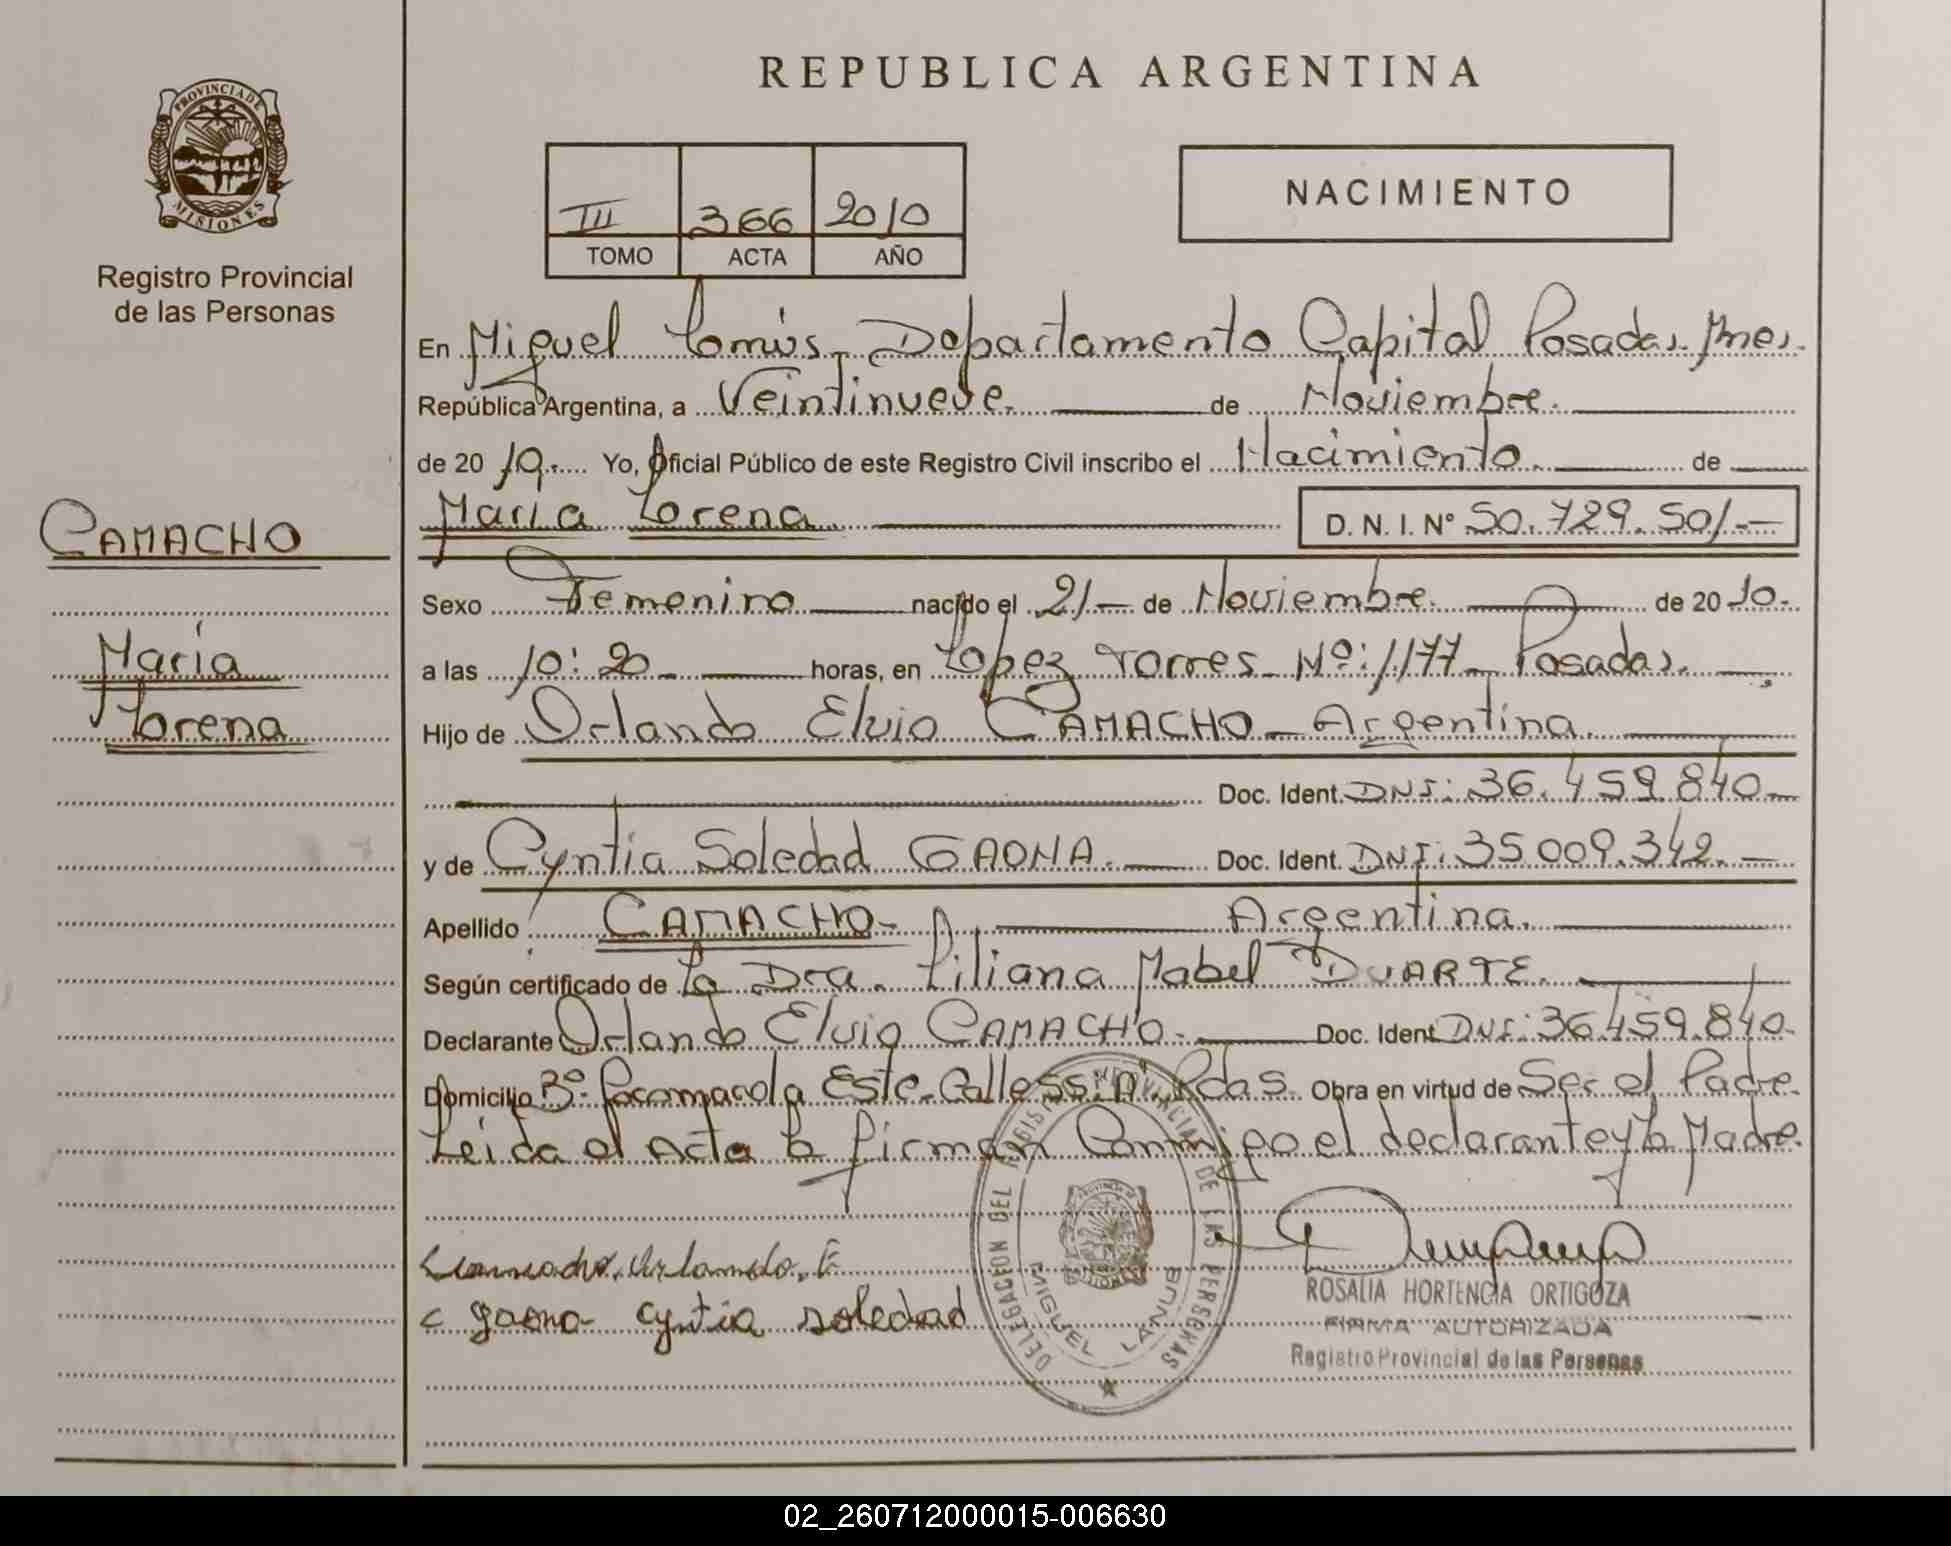 REPUBLICA ARGENTINA
PROVINCIA DE
MISIONES
Registro Provincial
de las Personas
III 366 2010
TOMO ACTA AÑO
NACIMIENTO
En Miguel Lanús, Departamento Capital Posadas. Mnes.
República Argentina, a Veintinueve. de Noviembre.
de 20 10. Yo, Oficial Público de este Registro Civil inscribo el Nacimiento. de
CAMACHO
María Lorena. D. N. I. N° 50.729.501.-
Sexo Femenino nacido el 21 - de Noviembre. de 20 10.
María
a las 10:20 horas, en Lopez Torres Nº: 1177 Posadas.
Lorena
Hijo de Orlando Elvio CAMACHO - Argentina.
Doc. Ident. DNI: 36.459.840-
y de Cyntia Soledad GAONA. Doc. Ident. DNI: 35.009.342.-
Apellido CAMACHO- Argentina.
Según certificado de La Dra. Liliana Mabel DUARTE.
Declarante Orlando Elvio CAMACHO. Doc. Ident. DNI: 36.459.840.
Domicilio Bº Este. Pdas. Obra en virtud de Ser el Padre.
Leida el Acta la firman Conmigo el declarante y la Madre.
DELEGACION DEL REGISTRO PROVINCIAL DE LAS PERSONAS
MIGUEL LANUS
gaona cyntia soledad
ROSALIA HORTENCIA ORTIGOZA
FIRMA AUTORIZADA
Registro Provincial de las Personas
02_260712000015-006630